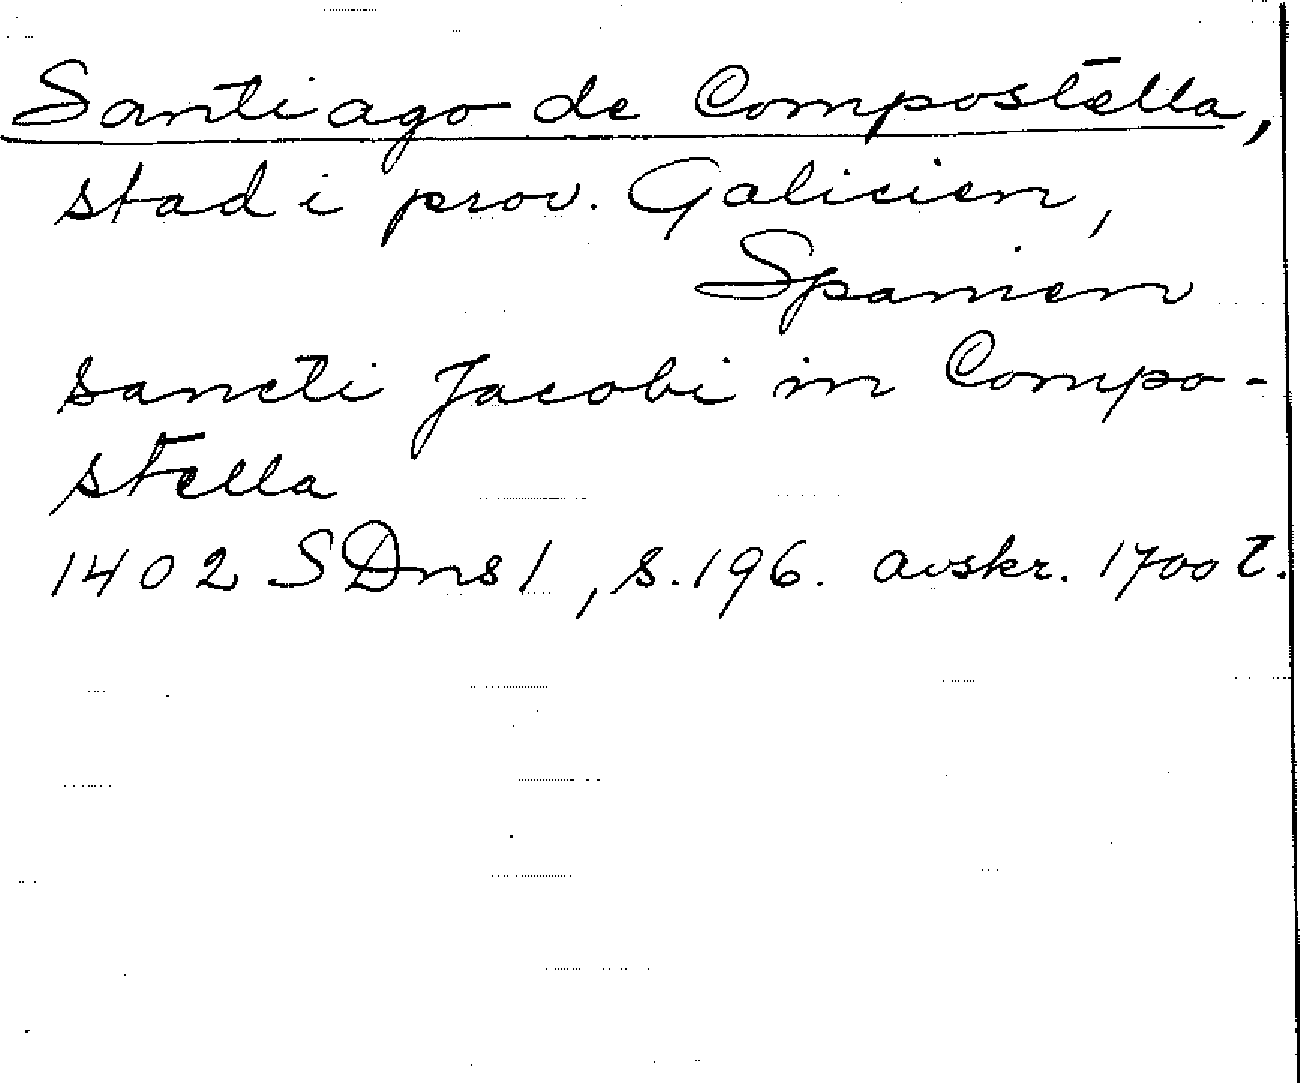 Santiago de Compostella,
stad i prov. Galicien,
Spanien
sancti Jacobi in Compo-
stella
1402 SDns 1, s. 196. avskr. 1700 t.